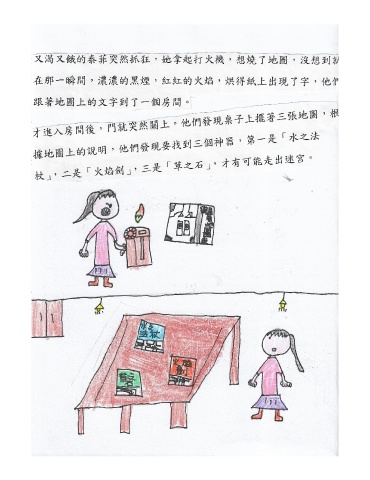 又渴又餓的泰菲突然抓狂，她拿起打火機，想燒了地圖，沒想到
在那一瞬間，濃濃的黑煙，紅紅的火焰，烘得紙上出現了字，他們
跟著地圖上的文字到了一個房間。
才進入房間後，門就突然關上。他們發現桌子上擺著三張地圖，根
據地圖上的說明，他們發現要找到三個神器，第一是「水之法
杖」，二是「火焰劍」，三是「草之石」，才有可能走出迷宮。